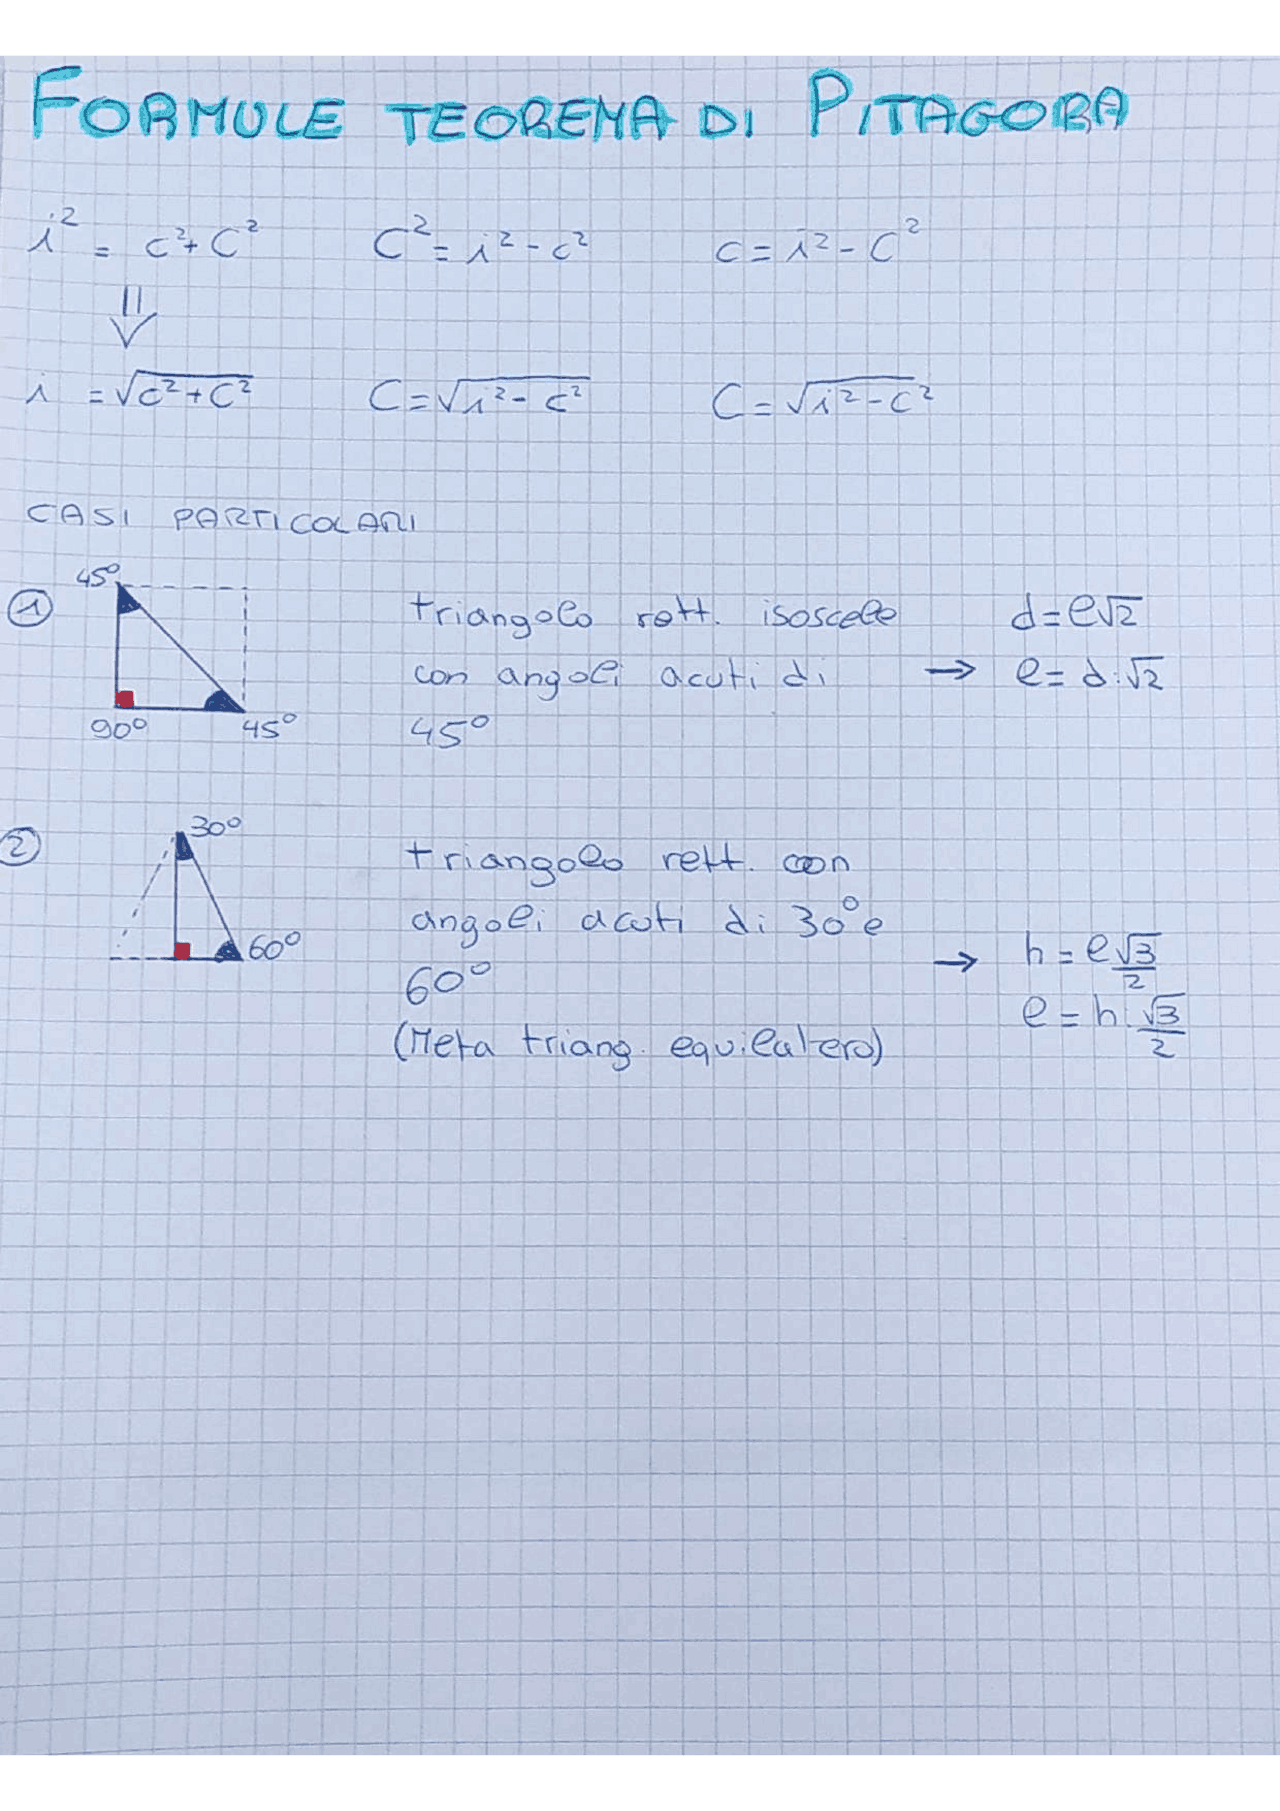 FORMULE TEOREMA DI PITAGORA
i² = c²+C² C²=i²-c² c=i²-C²
⇓
i =√c²+C² C=√i²-c² C=√i²-C²
CASI PARTICOLARI
45°
① triangolo rett. isoscele d=l√2
con angoli acuti di → l=d:√2
90° 45° 45°
② 30°
triangolo rett. con
angoli acuti di 30° e
60° 60° → h=l√3/2
l=h:√3/2
(Meta triang. equilatero)